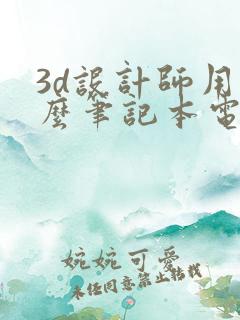 3d設計師用
麼筆記本電
婉婉可愛
未經同意禁止轉載